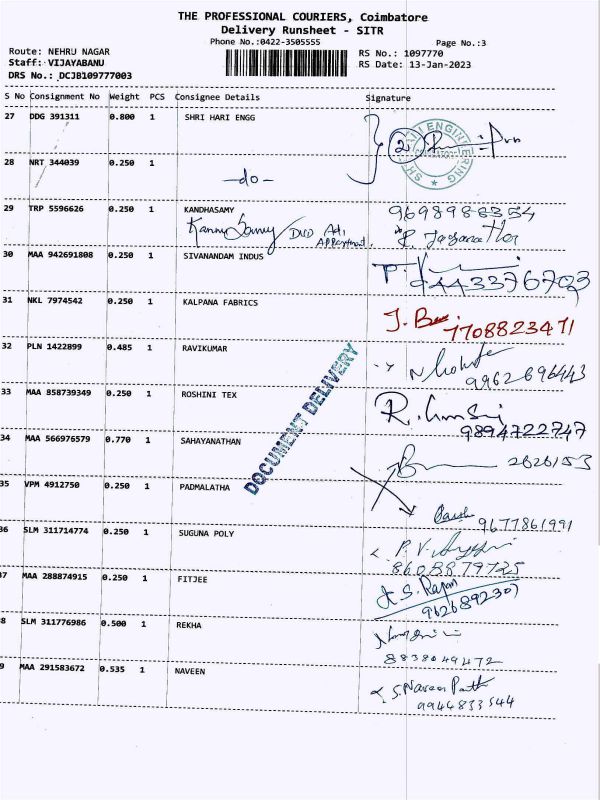 THE PROFESSIONAL COURIERS, Coimbatore
Delivery Runsheet - SITR
Phone No.:0422-3505555
Page No.:3
Route: NEHRU NAGAR
RS No.: 1097770
Staff: VIJAYABANU
RS Date: 13-Jan-2023
DRS No.: DCJB109777003
S No Consignment No Weight PCS Consignee Details Signature
27 DDG 391311 0.800 1 SHRI HARI ENGG
2
28 NRT 344039 0.250 1
-do-
29 TRP 5596626 0.250 1 KANDHASAMY
30 MAA 942691808 0.250 1 SIVANANDAM INDUS
31 NKL 7974542 0.250 1 KALPANA FABRICS
J. B
7708823471
32 PLN 1422899 0.485 1 RAVIKUMAR
9962696443
33 MAA 858739349 0.250 1 ROSHINI TEX
9894722747
34 MAA 566976579 0.770 1 SAHAYANATHAN
2626153
DOCUMENT DELIVERY
35 VPM 4912750 0.250 1 PADMALATHA
9677861991
36 SLM 311714774 0.250 1 SUGUNA POLY
8608879725
37 MAA 288874915 0.250 1 FITJEE
S. Rajan
9626892307
8 SLM 311776986 0.500 1 REKHA
8838049472
9 MAA 291583672 0.535 1 NAVEEN
S. Naveen
9944833544